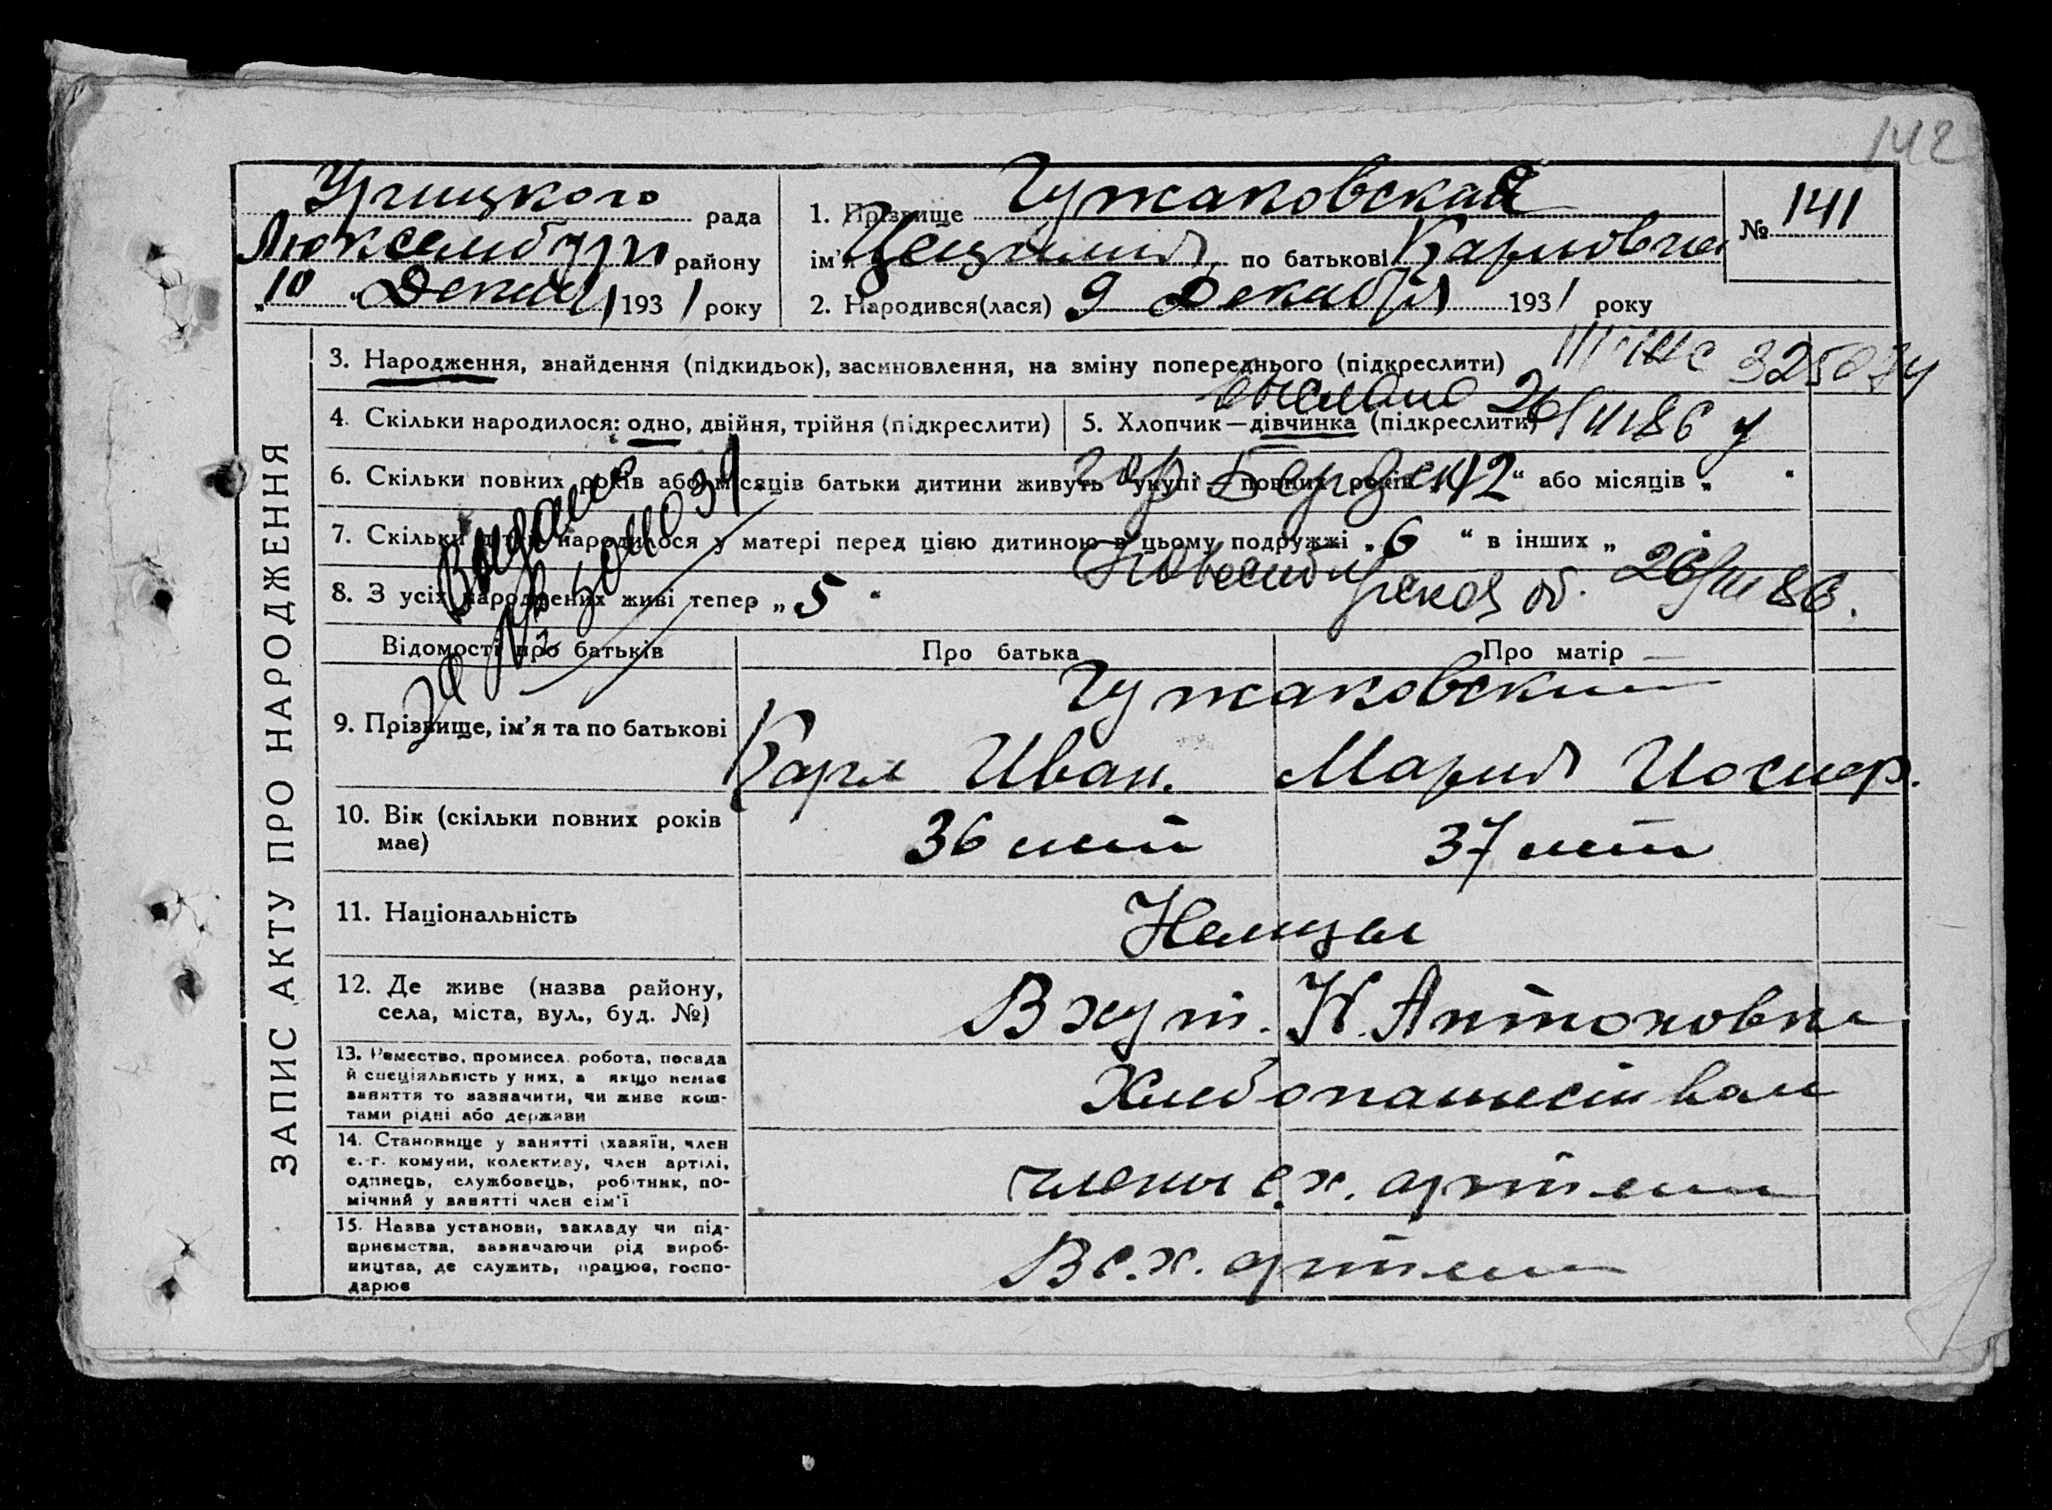 142
Урицкого рада
Люксембург району
„10“ Декабр 1931 року
1. Прізвище Чужаковская
ім'я Цецилия, по батькові Карловна
№ 141
2. Народився(лася) 9 Декабря 1931 року
ЗАПИС АКТУ ПРО НАРОДЖЕННЯ
3. Народження, знайдення (підкидьок), засиновлення, на зміну попереднього (підкреслити)
4. Скільки народилося: одно, двійня, трійня (підкреслити)
5. Хлопчик—дівчинка (підкреслити)
выслано 26/III 86 г
6. Скільки повних років або місяців батьки дитини живуть укупі — повних років „12“ або місяців „ “
гор Бердск
7. Скільки дітей народилося у матері перед цією дитиною в цьому подружжі „6“ в інших „
Новосибирская об. 26/III 86.
8. З усіх народжених живі тепер „5“
Выдано
Відомості про батьків
Про батька
Про матір
9. Прізвище, ім'я та по батькові
Чужаковские
Карл Иван.
Мария Иосиф.
10. Вік (скільки повних років
має)
36 лет
37 лет
11. Національність
Немцы
12. Де живе (назва району,
села, міста, вул., буд. №)
В хут. Н. Антоновке
13. Ремество, промисел. робота, посада
й спеціяльність у них, а якщо немає
заняття то зазначити, чи живе кош-
тами рідні або держави
Хлебопашеством
14. Становище у занятті (хазяїн, член
с.-г. комуни, колективу, член артілі,
одинець, службовець, робітник, по-
мічний у занятті член сім'ї
члены с.х. артели
15. Назва установи, закладу чи під-
приємства, зазначаючи рід вироб-
ництва, де служить, працює, госпо-
дарює
В с.х. артели